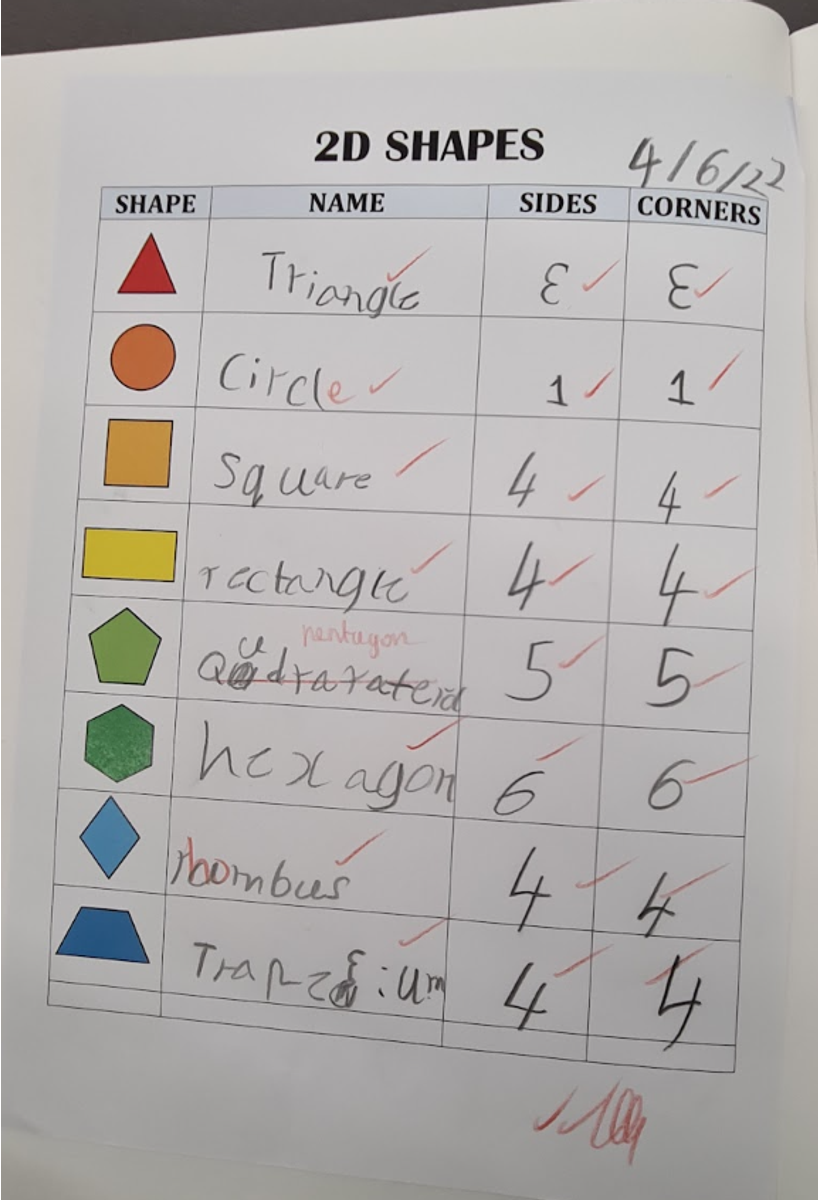 2D SHAPES
4/6/22
SHAPE NAME SIDES CORNERS
Triangle 3 3
Circle 1 1
Square 4 4
rectangle 4 4
pentagon
5 5
hexagon 6 6
rhombus 4 4
4 4